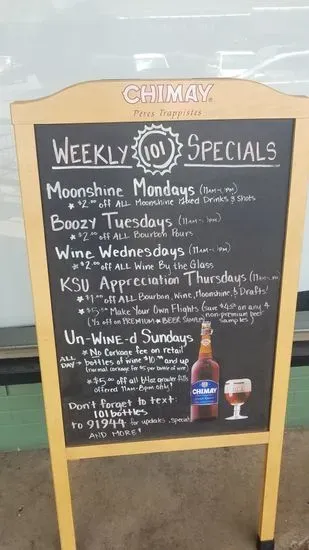 CHIMAY
Peres Trappistes
WEEKLY 101 SPECIALS
Moonshine Mondays (11AM-
* $2.00 off ALL Moonshine Mixed Drinks & Shots
Boozy Tuesdays (11AM-
* $2.00 off ALL Bourbon Pours
Wine Wednesdays (11AM-
* $2.00 off ALL Wine By the Glass
KSU Appreciation Thursdays (11AM-
* $1.00 off ALL Bourbon, Wine, Moonshine, & Drafts!
* $5.00 Make Your Own Flights (save $4.00 on any 4
(1/2 off on PREMIUM * BEER Samples) non-premium beer
samples)
Un-WINE-d Sundays
ALL DAY * No Corkage fee on retail
bottles of wine $10.00 and up
(normal corkage fee $5 per bottle of wine)
* $5.00 off all 64oz growler fills
offered 11am-8pm only!
Don't forget to text:
101bottles
to 91944 for updates, special
AND MORE!
CHIMAY